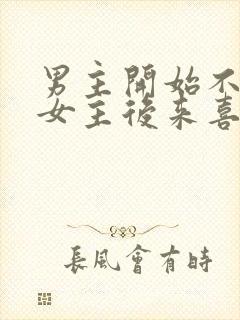 男主開始不
女主後来喜
長風會有時